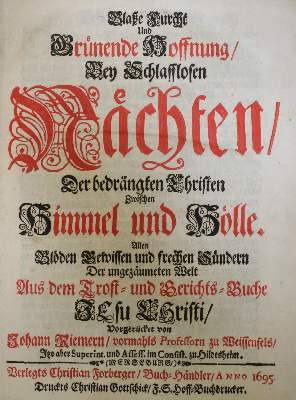 Blaße Furcht
Und
Grünende Hoffnung/
Bey Schlafflosen
Nächten/
Der bedrängten Christen
Zwischen
Himmel und Hölle.
Allen
Blöden Gewissen und frechen Sündern
Der ungezäumeten Welt
Aus dem Trost- und Gerichts-Buche
JEsu CHristi/
Vorgerücket von
Johann Riemern/ vormahls Professorn zu Weissenfels/
Itzo aber Superint. und Assess. im Consist. zu Hildesheim.
MERSEBURG/
Verlegts Christian Forberger/ Buch-Händler/ ANNO 1695.
Druckts Christian Gottschick/ F. S. Hoff-Buchdrucker.